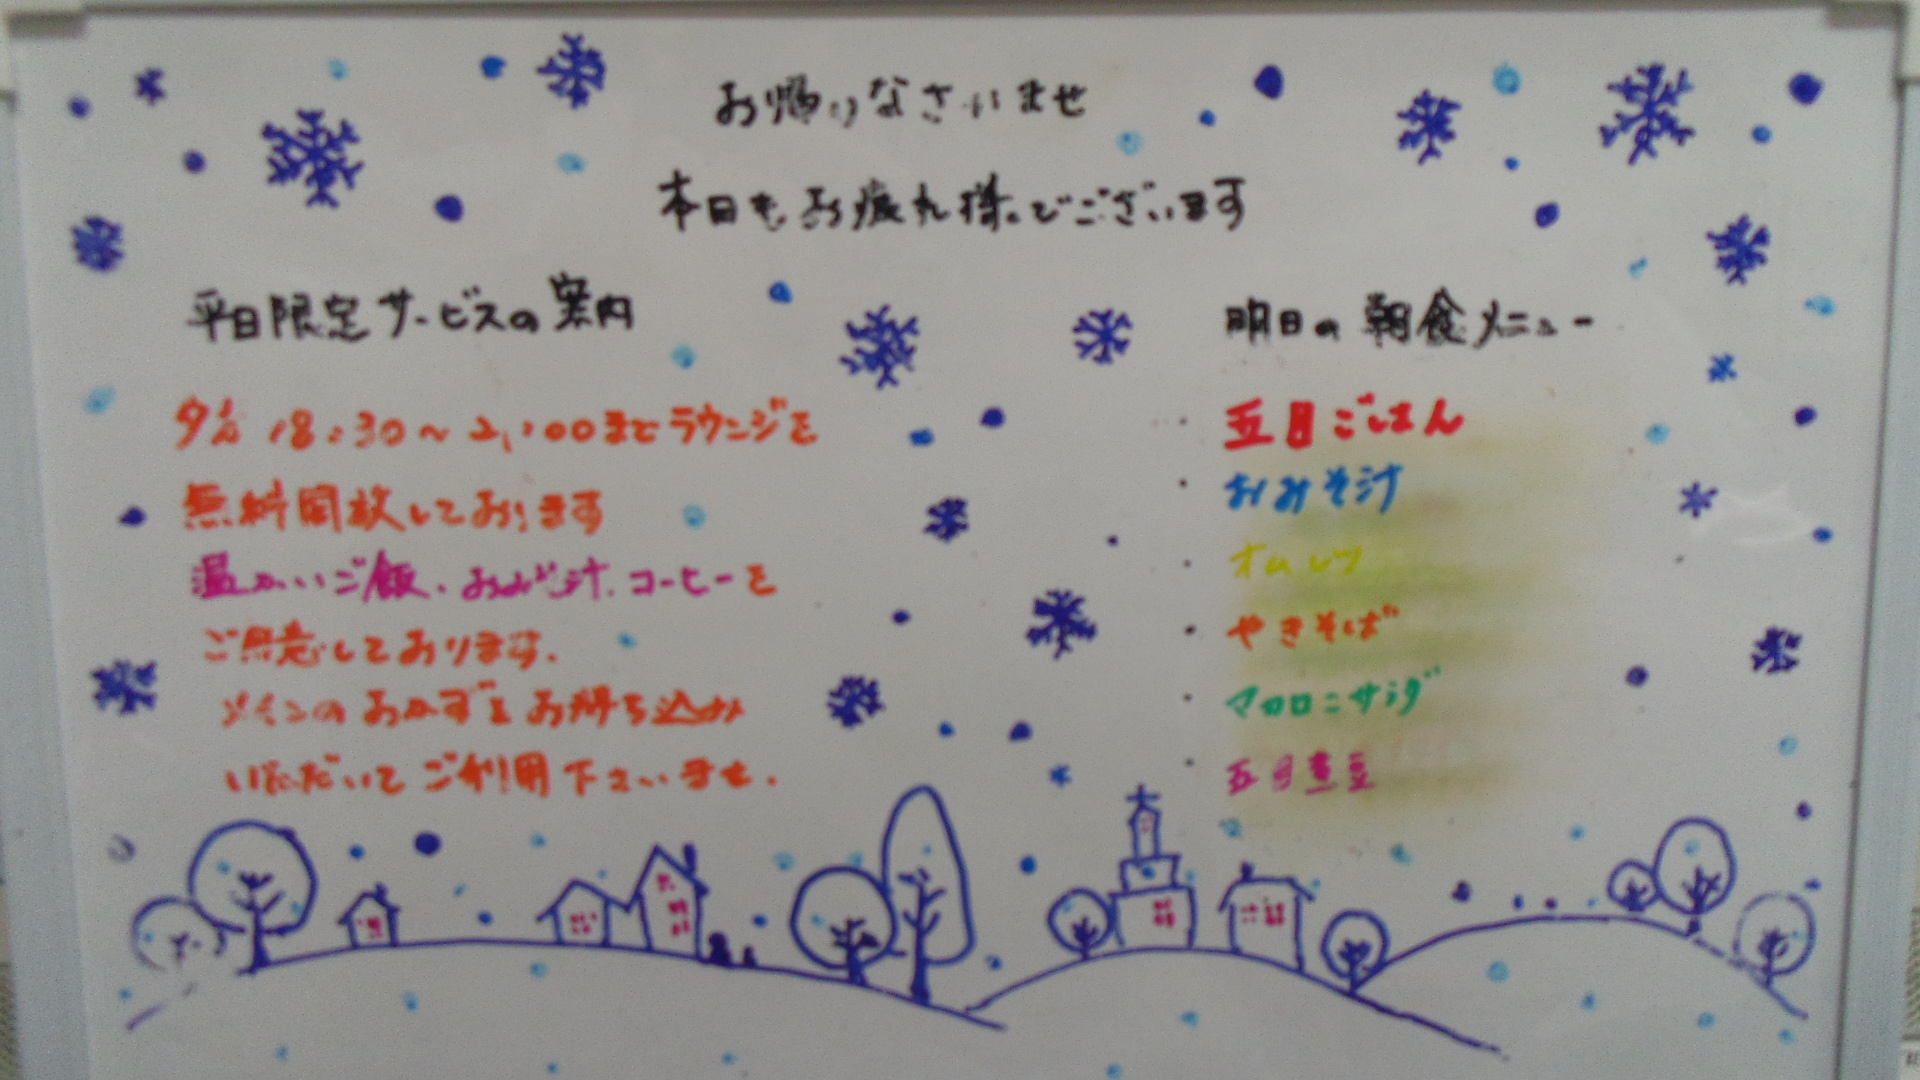 お帰りなさいませ
本日もお疲れ様でございます
平日限定サービスの案内
夕方 18:30～21:00までラウンジを
無料開放しております
温かいご飯、おみそ汁、コーヒーを
ご用意しております。
メインのおかずをお持ち込み
いただいてご利用下さいませ。
明日の朝食メニュー
・五目ごはん
・おみそ汁
・オムレツ
・やきそば
・マカロニサラダ
・五目煮豆